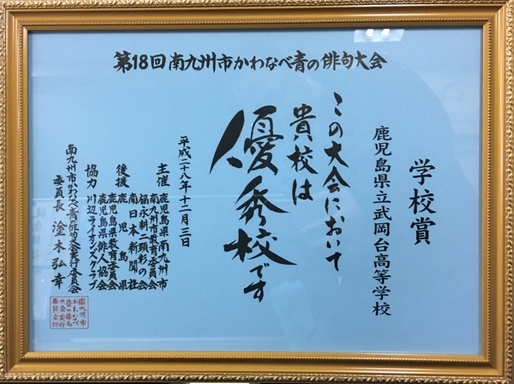 第18回南九州市かわなべ青の俳句大会
学校賞
鹿児島県立武岡台高等学校
この大会において
貴校は
優秀校です
平成二十八年十二月三日
主催 鹿児島県南九州市
南九州市教育委員会
福永耕二顕彰の会
後援 南日本新聞社
鹿児島県
鹿児島県教育委員会
鹿児島県俳人協会
協力 川辺ライオンズクラブ
南九州市かわなべ青の俳句大会実行委員会
委員長 塗木弘幸